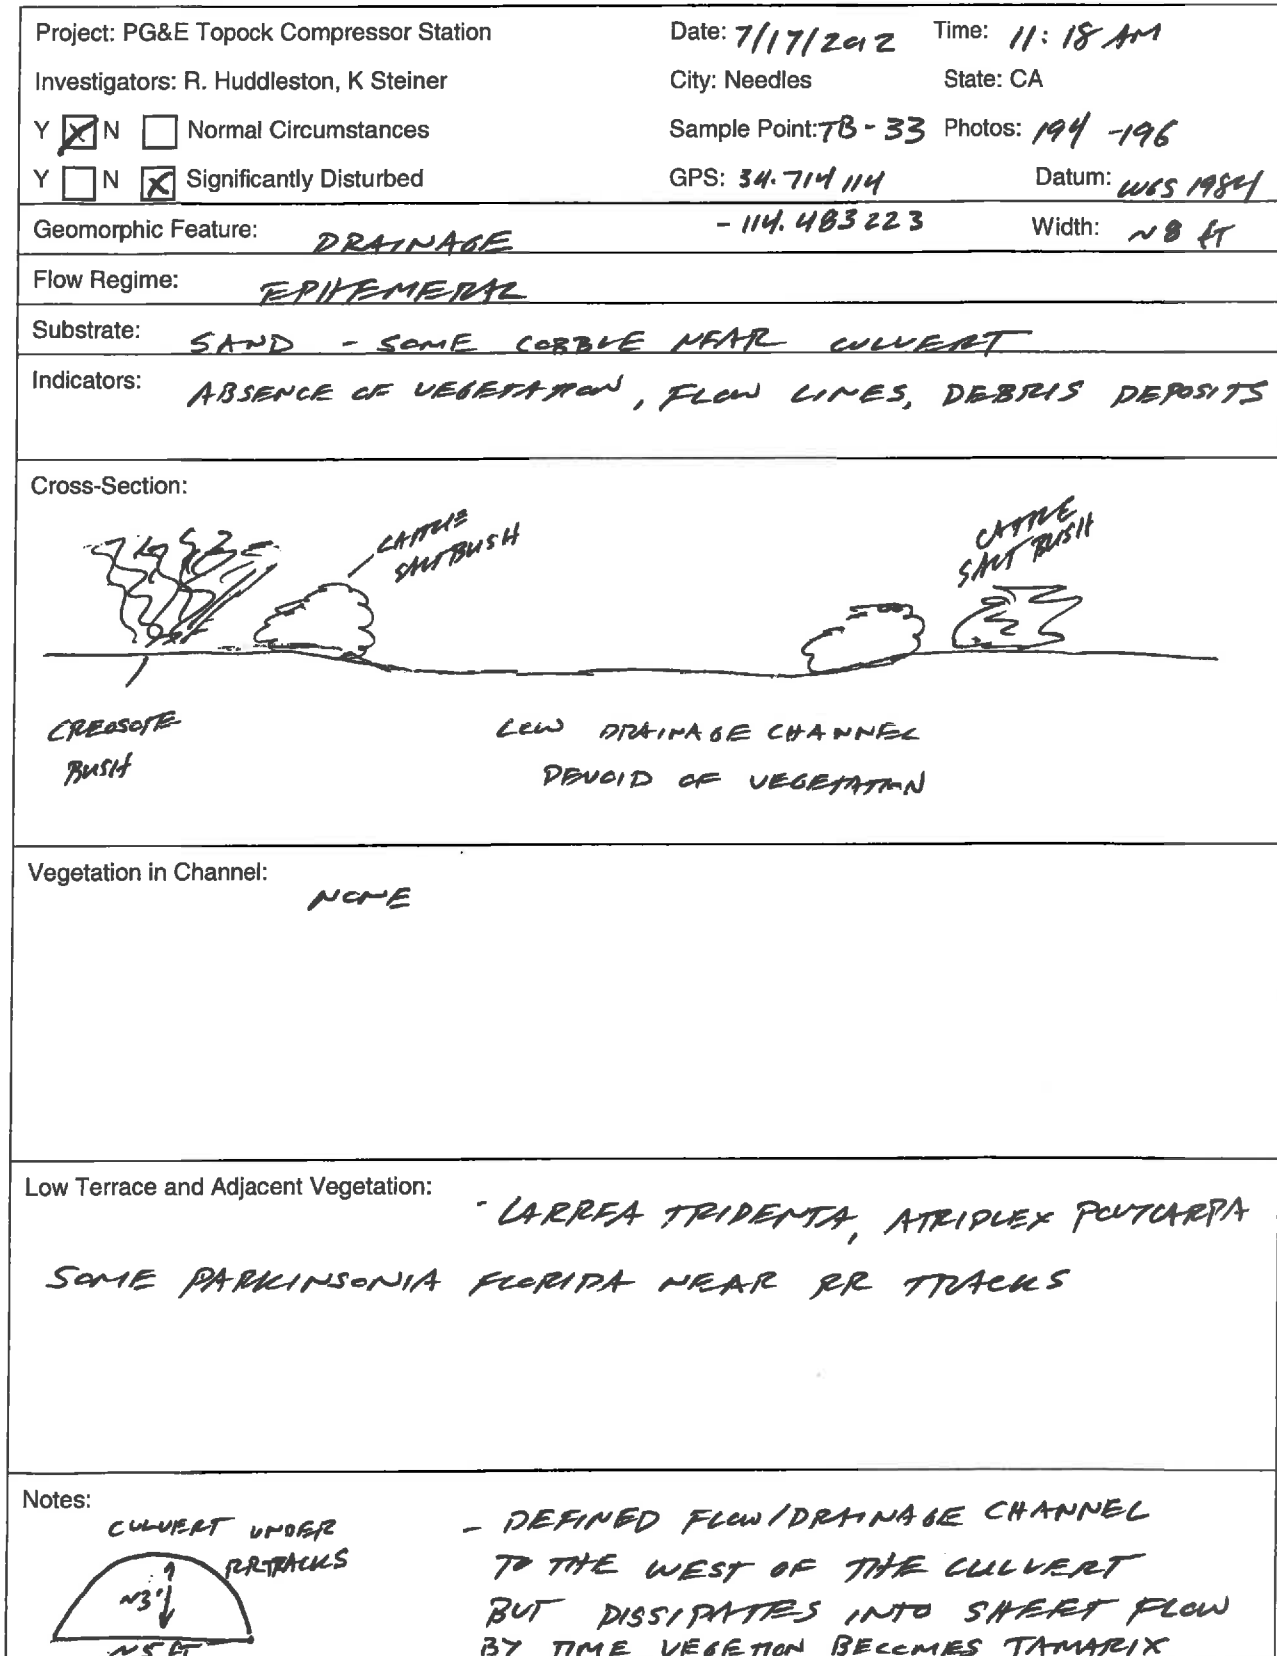 Project: PG&E Topock Compressor Station Date: 7/17/2012 Time: 11:18 AM
Investigators: R. Huddleston, K Steiner City: Needles State: CA
Y X N Normal Circumstances Sample Point: TB-33 Photos: 194-196
Y N X Significantly Disturbed GPS: 34.714114 Datum: WGS 1984
Geomorphic Feature: DRAINAGE -114.483223 Width: ~8 ft
Flow Regime: EPHEMERAL
Substrate: SAND - SOME COBBLE NEAR CULVERT
Indicators: ABSENCE OF VEGETATION, FLOW LINES, DEBRIS DEPOSITS
Cross-Section:
CATTLE CATTLE
SALTBUSH SALT BUSH
CREOSOTE LOW DRAINAGE CHANNEL
BUSH DEVOID OF VEGETATION
Vegetation in Channel:
NONE
Low Terrace and Adjacent Vegetation:
- LARREA TRIDENTA, ATRIPLEX POLYCARPA
SOME PARKINSONIA FLORIDA NEAR RR TRACKS
Notes:
CULVERT UNDER
RR TRACKS
~3'
~5 FT
- DEFINED FLOW/DRAINAGE CHANNEL
TO THE WEST OF THE CULVERT
BUT DISSIPATES INTO SHEET FLOW
BY TIME VEGETION BECOMES TAMARIX